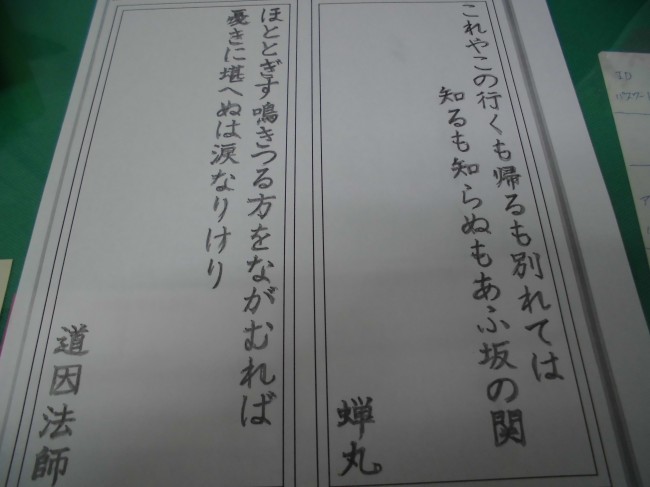 これやこの行くも帰るも別れては
知るも知らぬもあふ坂の関
蝉丸
ほととぎす鳴きつる方をながむれば
憂きに堪へぬは涙なりけり
道因法師